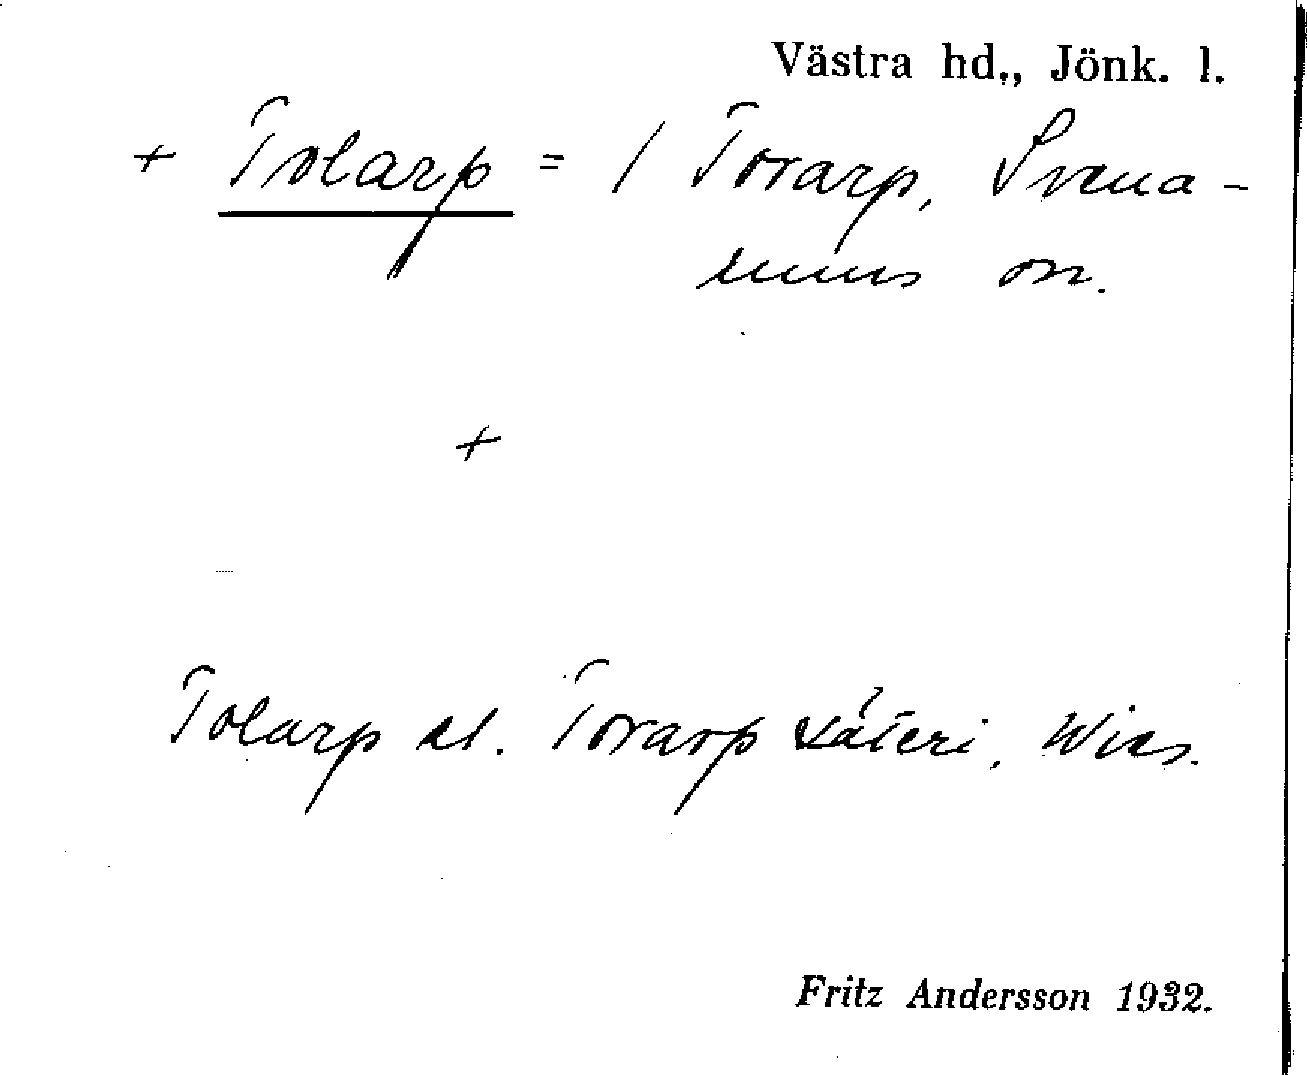 Västra hd., Jönk. l.
+ Tolarp = / Torrarp, Svena-
rums sn.
+
Tolarp el. Torrarp säteri, Wies.
Fritz Andersson 1932.